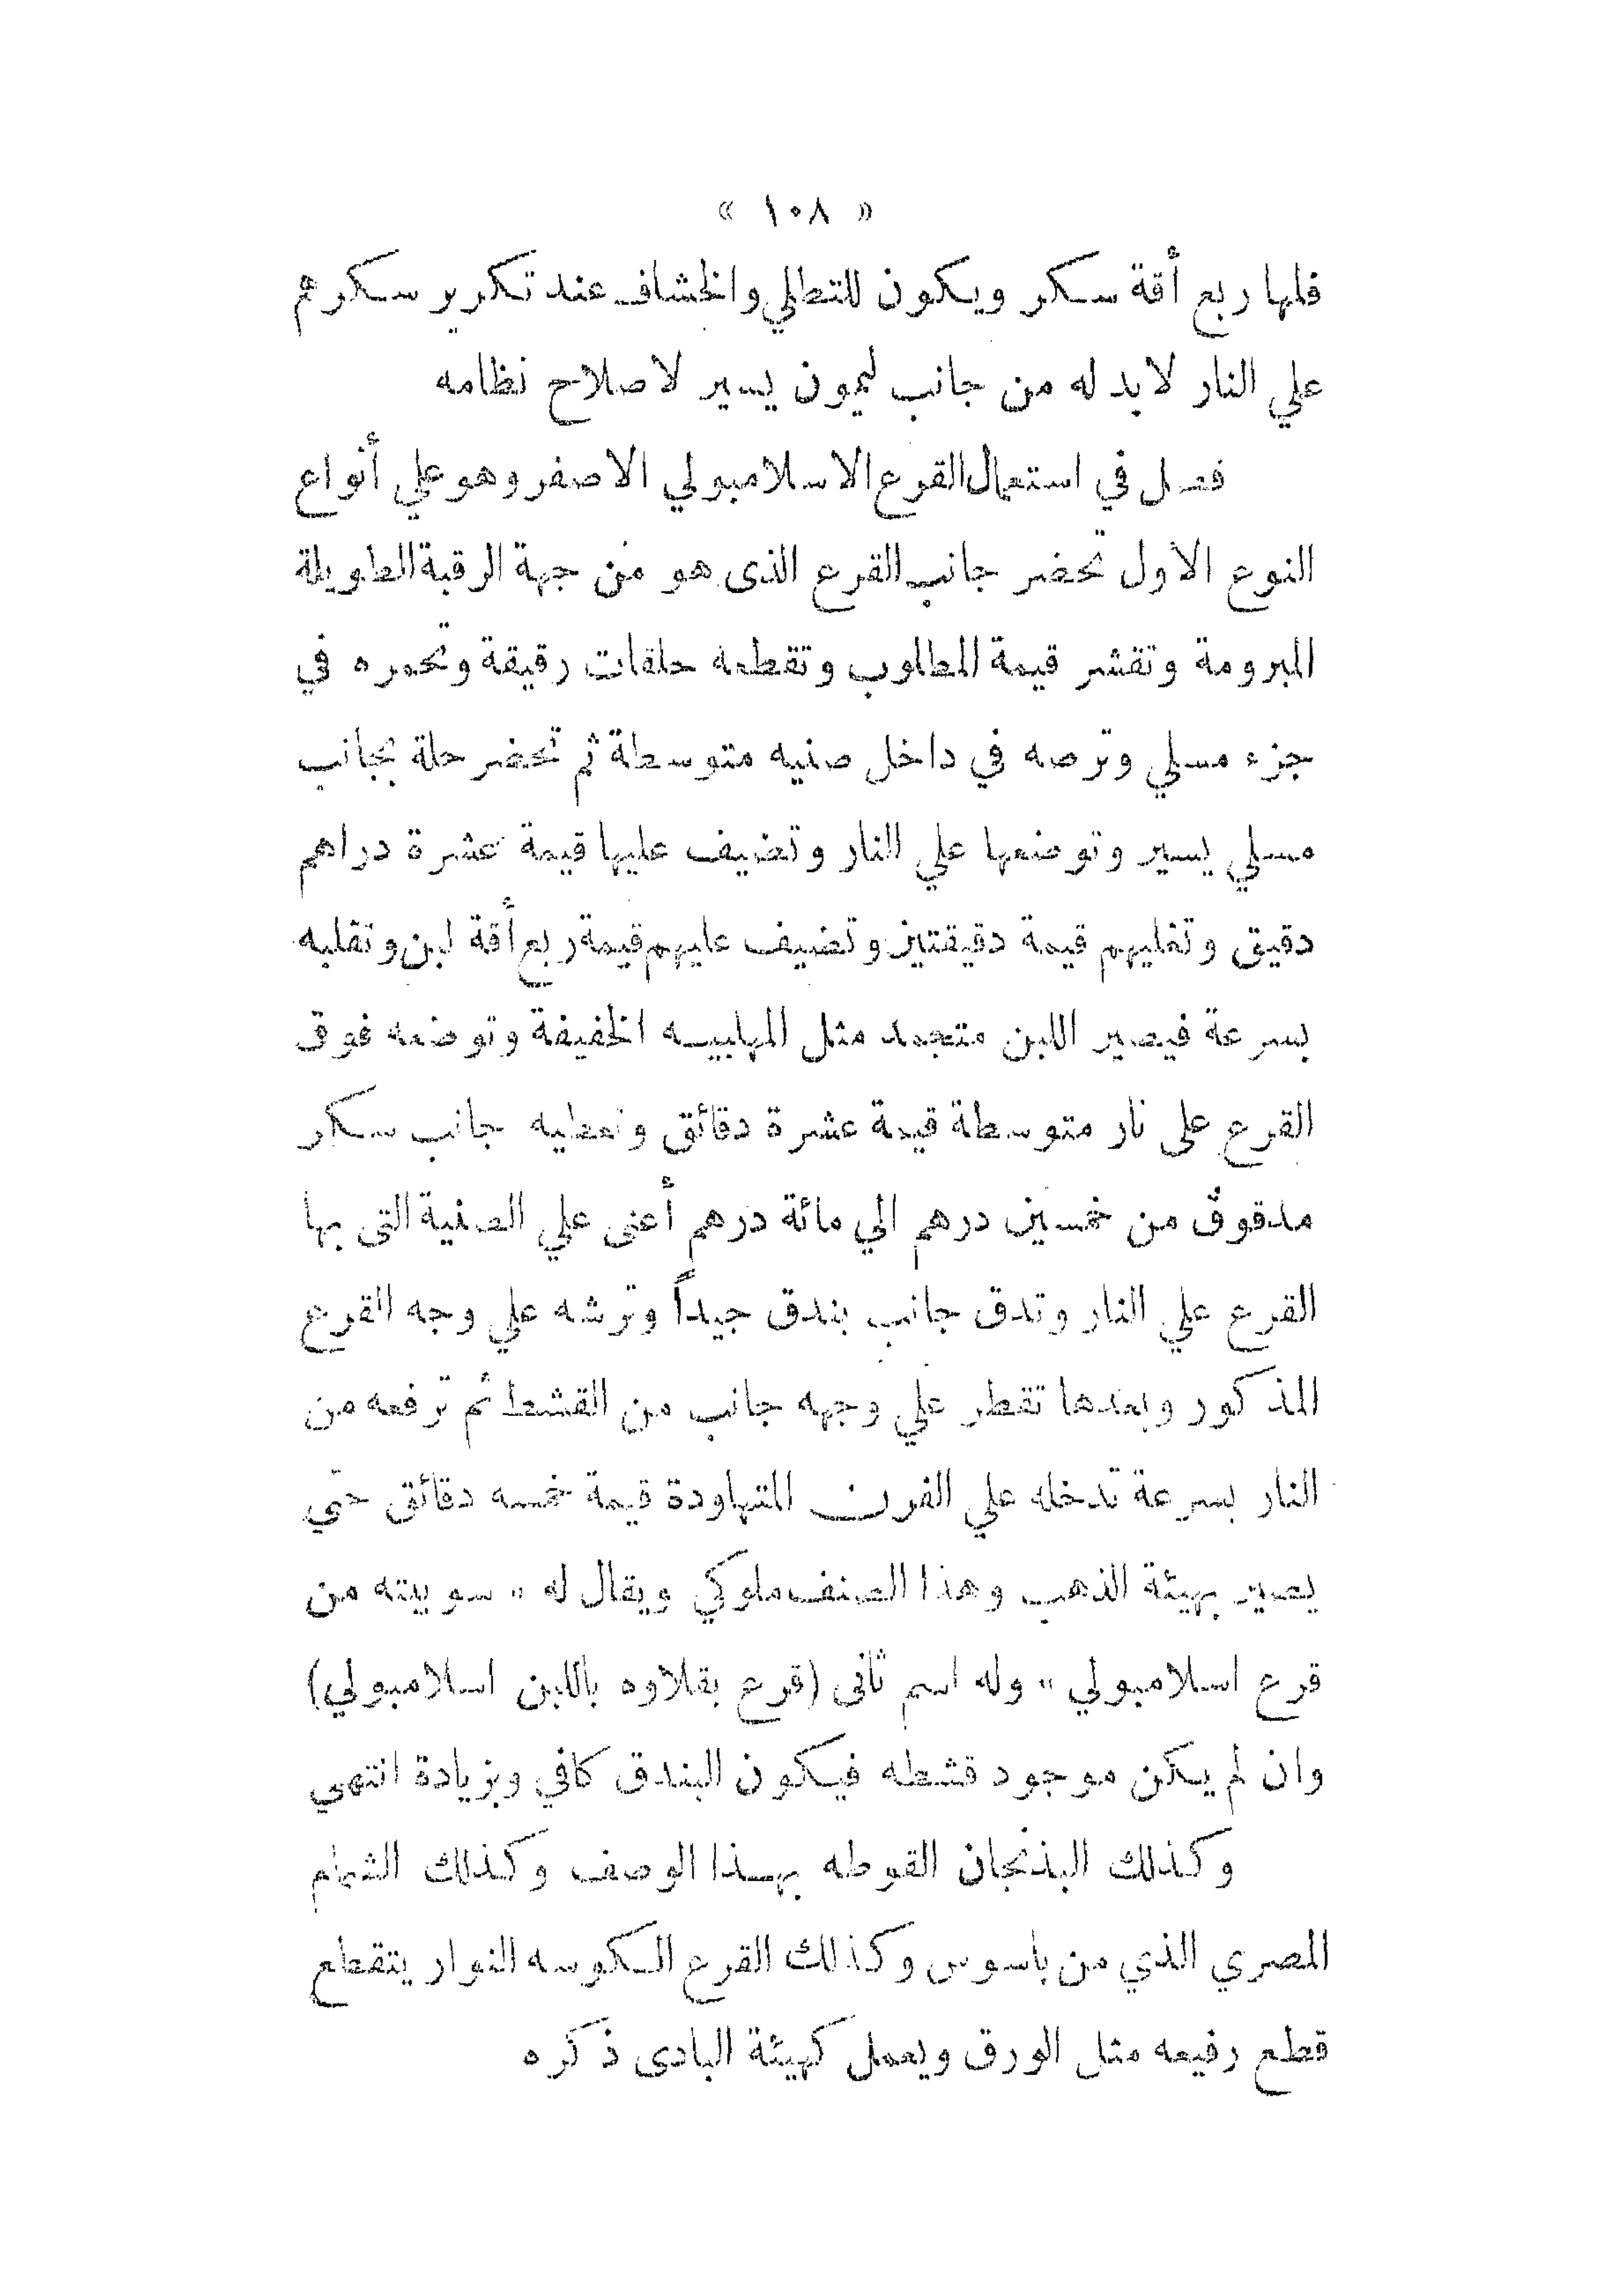 « ١٠٨ »
فلها ربع أقة سكر ويكون للتطلي والخشاف عند تكرير سكرهم
علي النار لابد له من جانب ليمون يسير لاصلاح نظامه
فصل في استعمال القرع الاسلامبولي الاصفر وهو علي أنواع
النوع الاول تحضر جانب القرع الذى هو من جهة الرقبة الطويلة
المبرومة وتقشر قيمة المطلوب وتقطعه حلقات رقيقة وتحمره في
جزء مسلي وترصه في داخل صنيه متوسطة ثم تحضر حلة بجانب
مسلي يسير وتوضعها علي النار وتضيف عليها قيمة عشرة دراهم
دقيق وتغليهم قيمة دقيقتين وتضيف عليهم قيمة ربع أقة لبن وتقلبه
بسرعة فيصير اللبن متجمد مثل المهلبيه الخفيفة وتوضعه فوق
القرع على نار متوسطة قيمة عشرة دقائق وتعطيه جانب سكر
مدقوق من خمسين درهم الي مائة درهم أعنى علي الصنية التى بها
القرع علي النار وتدق جانب بندق جيداً وترشه علي وجه القرع
المذكور وبعدها تقطر علي وجهه جانب من القشطا ثم ترفعه من
النار بسرعة تدخله علي الفرن المتهاودة قيمة خمسه دقائق حتي
يصير بهيئة الذهب وهذا الصنف ملوكي ويقال له " سوبيته من
قرع اسلامبولي " وله اسم ثانى (قرع بقلاوه باللبن اسلامبولي)
وان لم يكن موجود قشطه فيكون البندق كافي وبزيادة انتهي
وكذلك البذنجان القوطه بهذا الوصف وكذلك الشمام
المصري الذي من باسوس وكذلك القرع الكوسه النوار يتقطع
قطع رفيعه مثل الورق ويعمل كهيئة البادى ذكره